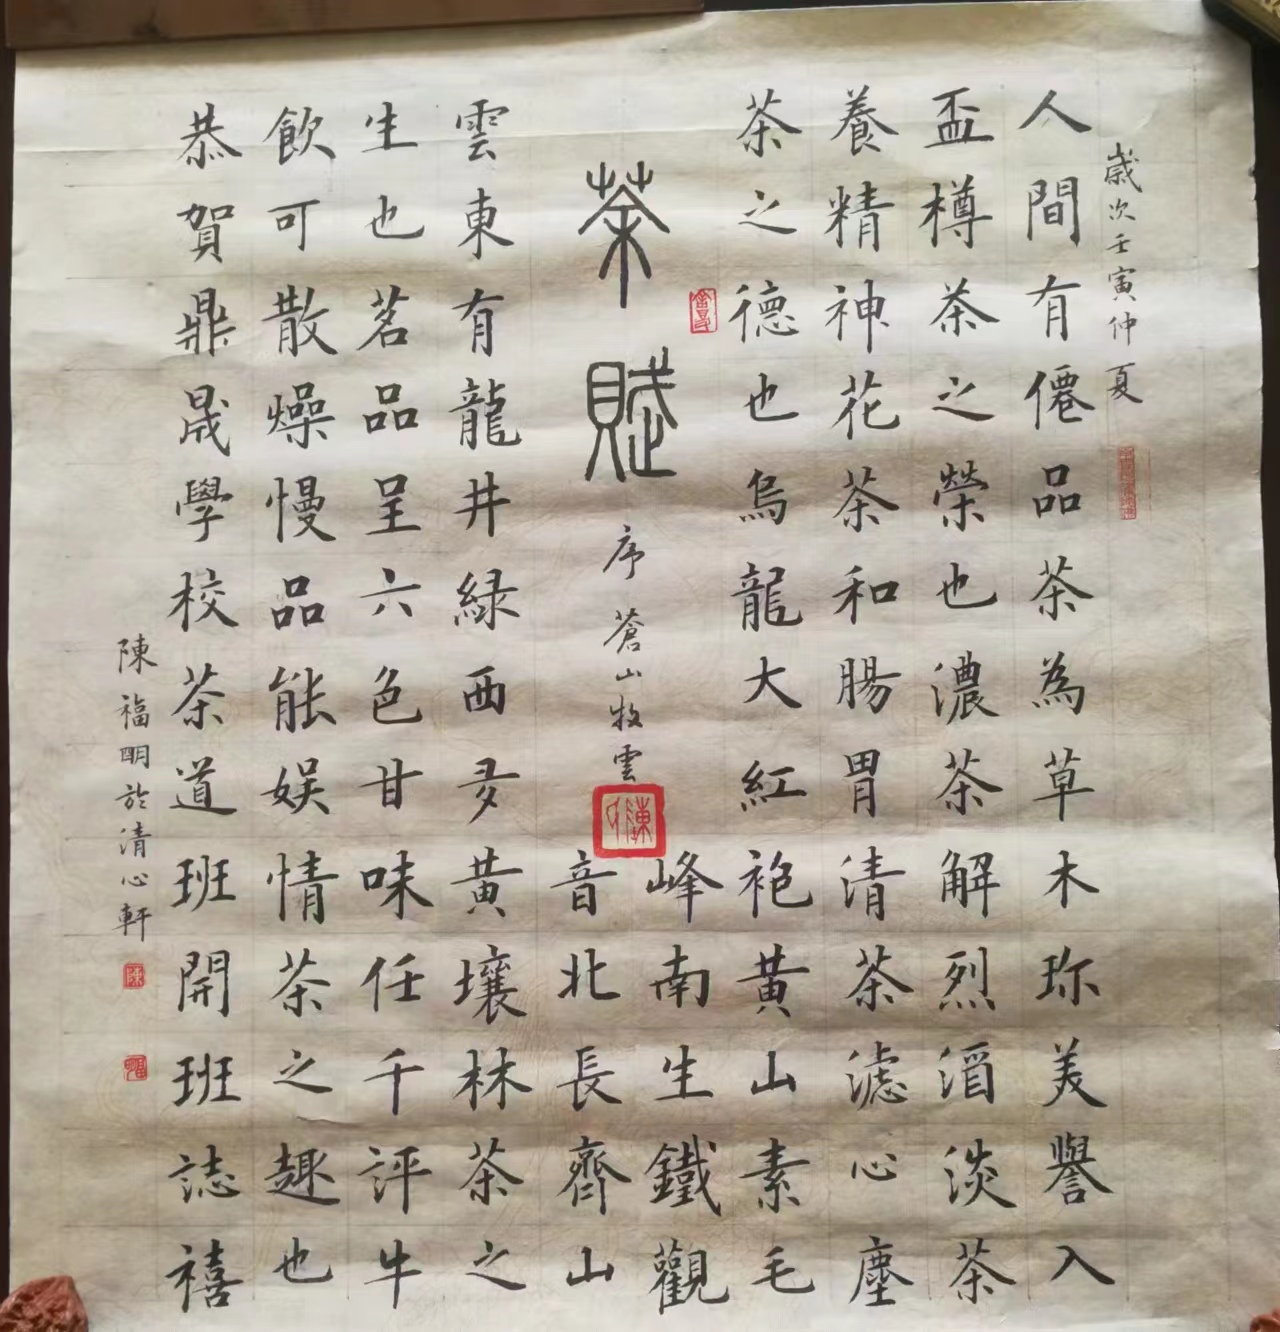 歲次壬寅仲夏
人間有僊品茶為草木珎美譽入
盃樽茶之榮也濃茶解烈酒淡茶
養精神花茶和腸胃清茶濾心塵
茶之德也烏龍大紅袍黃山素毛
峰南生鐵觀
茶賦
序 蒼山牧雲
音北長齊山
雲東有龍井綠西多黃壤林茶之
生也茗品呈六色甘味任千評牛
飲可散燥慢品能娛情茶之趣也
恭賀鼎晟學校茶道班開班誌禧
陳福明於清心軒